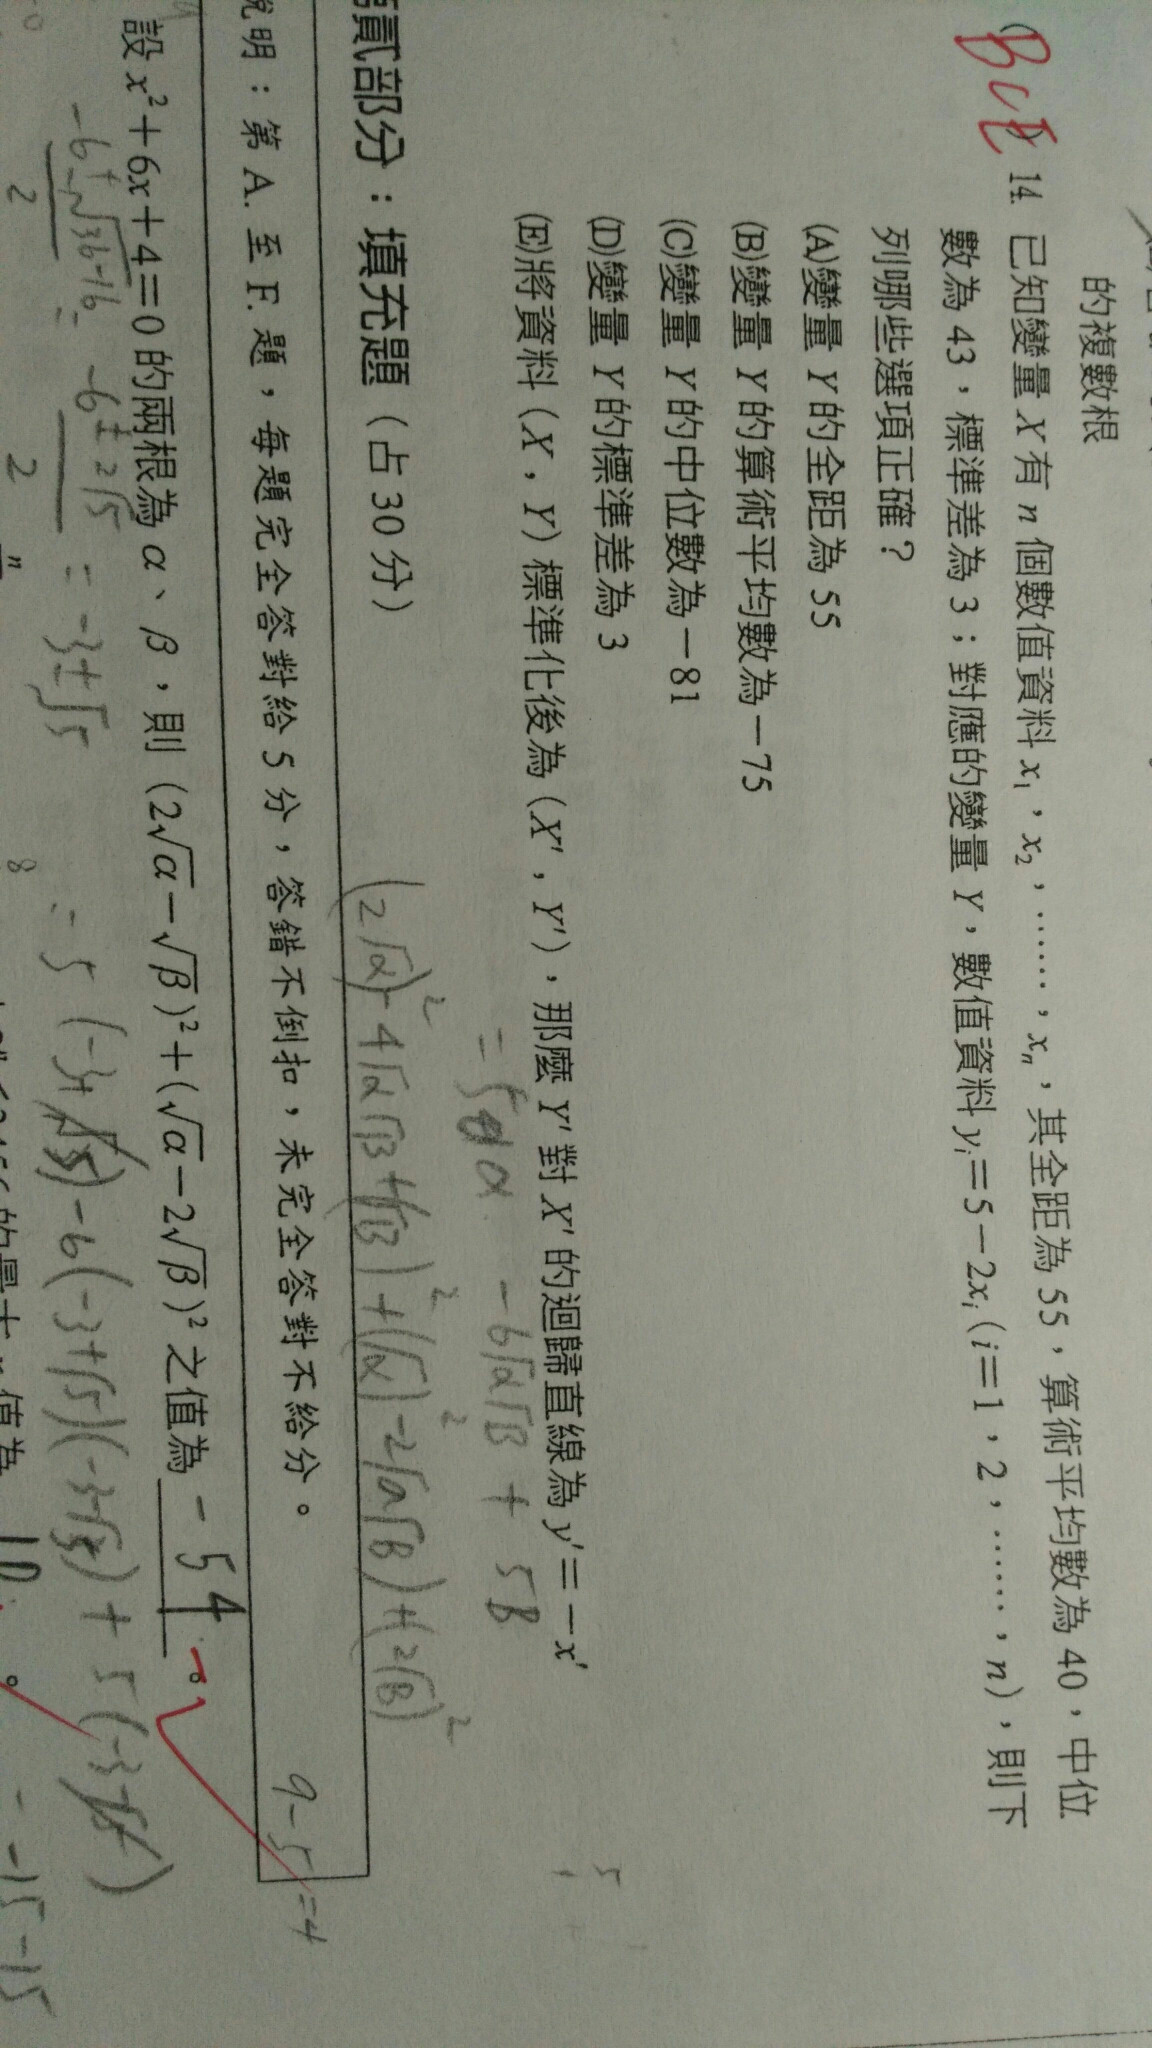 的複數根
BCE
14. 已知變量 X 有 n 個數值資料 x₁，x₂，……，xₙ，其全距為 55，算術平均數為 40，中位
數為 43，標準差為 3；對應的變量 Y，數值資料 yᵢ=5−2xᵢ (i=1，2，……，n)，則下
列哪些選項正確？
(A)變量 Y 的全距為 55
(B)變量 Y 的算術平均數為−75
(C)變量 Y 的中位數為−81
(D)變量 Y 的標準差為 3
(E)將資料 (X，Y) 標準化後為 (X′，Y′)，那麼 Y′ 對 X′ 的迴歸直線為 y′=−x′
=5α −6√α√β + 5β
貳部分：填充題（占 30 分）
(2√α)²−4√α√β+(√β)²+(√α)²−2√α√β)+(2√β)²
說明：第 A. 至 F. 題，每題完全答對給 5 分，答錯不倒扣，未完全答對不給分。
9−5=4
設 x²+6x+4=0 的兩根為 α、β，則 (2√α−√β)²+(√α−2√β)² 之值為 −54 。
−6±√36−16 / 2 = −6±2√5 / 2 = −3±√5
=5(−3+√5)−6(−3+√5)(−3−√5)+5(−3−√5)
−15−15
的最大
值為 10 。